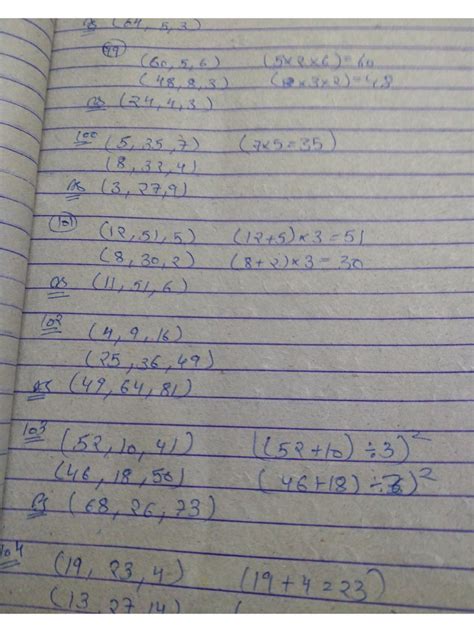 (64, 5, 3)
99
(60, 5, 6) (5×2×6)=60
(48, 8, 3) (8×3×2)=48
(24, 4, 3)
100 (5, 35, 7) (7×5=35)
(8, 32, 4)
(3, 27, 9)
101
(12, 51, 5) (12+5)×3=51
(8, 30, 2) (8+2)×3=30
(11, 51, 6)
102
(4, 9, 16)
(25, 36, 49)
(49, 64, 81)
103 (52, 10, 41) ((52+10)÷3)²
(46, 18, 50) (46+18)÷3)²
(68, 26, 73)
104 (19, 23, 4) (19+4=23)
(13, 27, 14)